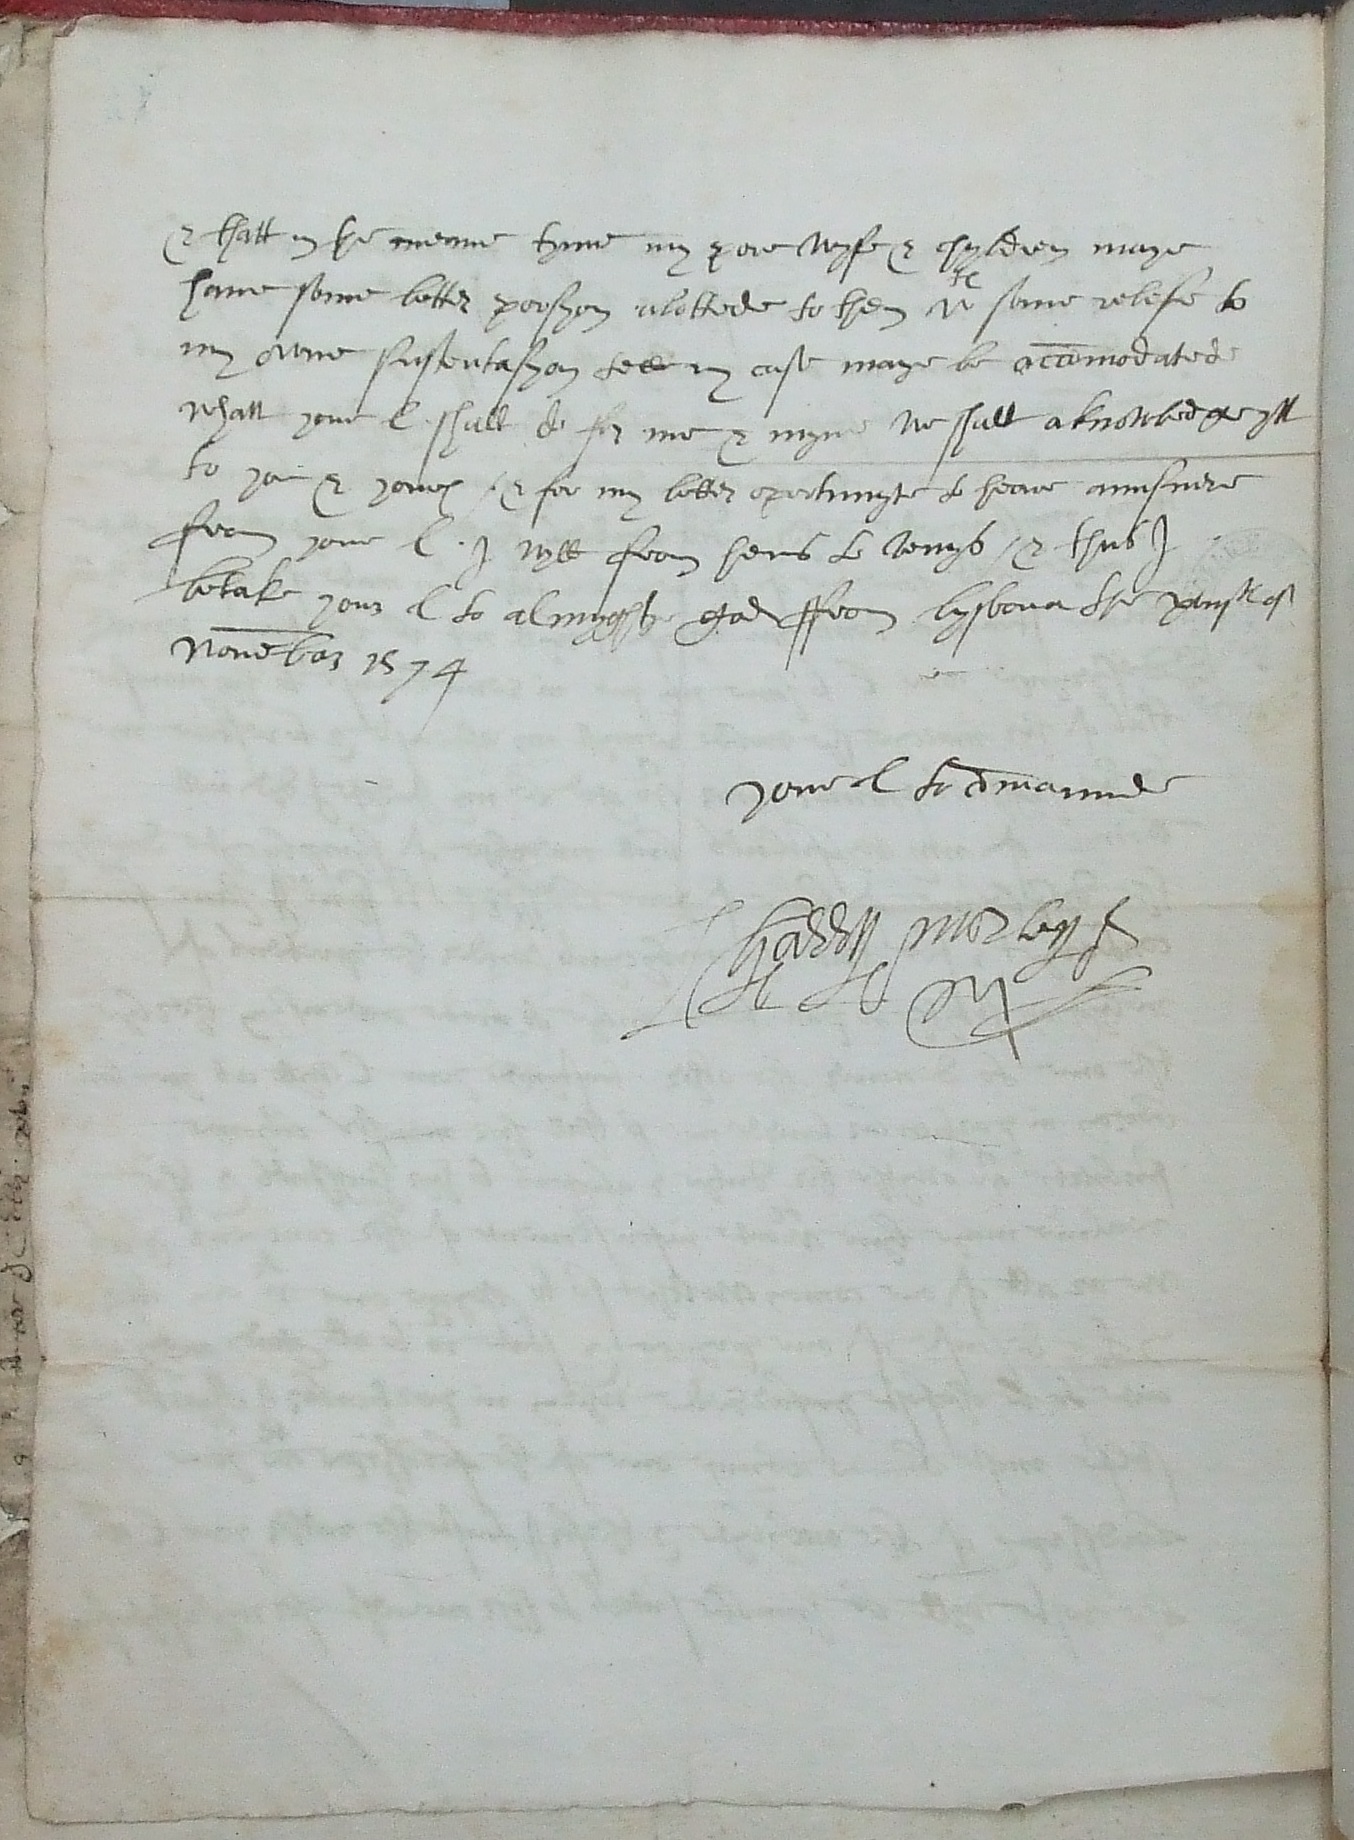 & thatt in the meane tyme my pore wyfe & chyldren maye
have some better porsyon alottede to them wth some relefe to
my owne sustentasyon tell my case maye be accomodatede
whatt youe l shall do for me & myne we shall aknowledge ytt
to you & youers / & for my better oportunyte to heare annswere
from youe l. I wyll from hens to / & thus I
betake your l to almyghty god ffrom lysbona the of
November 1574
youe l to comaunde
Harry Morley